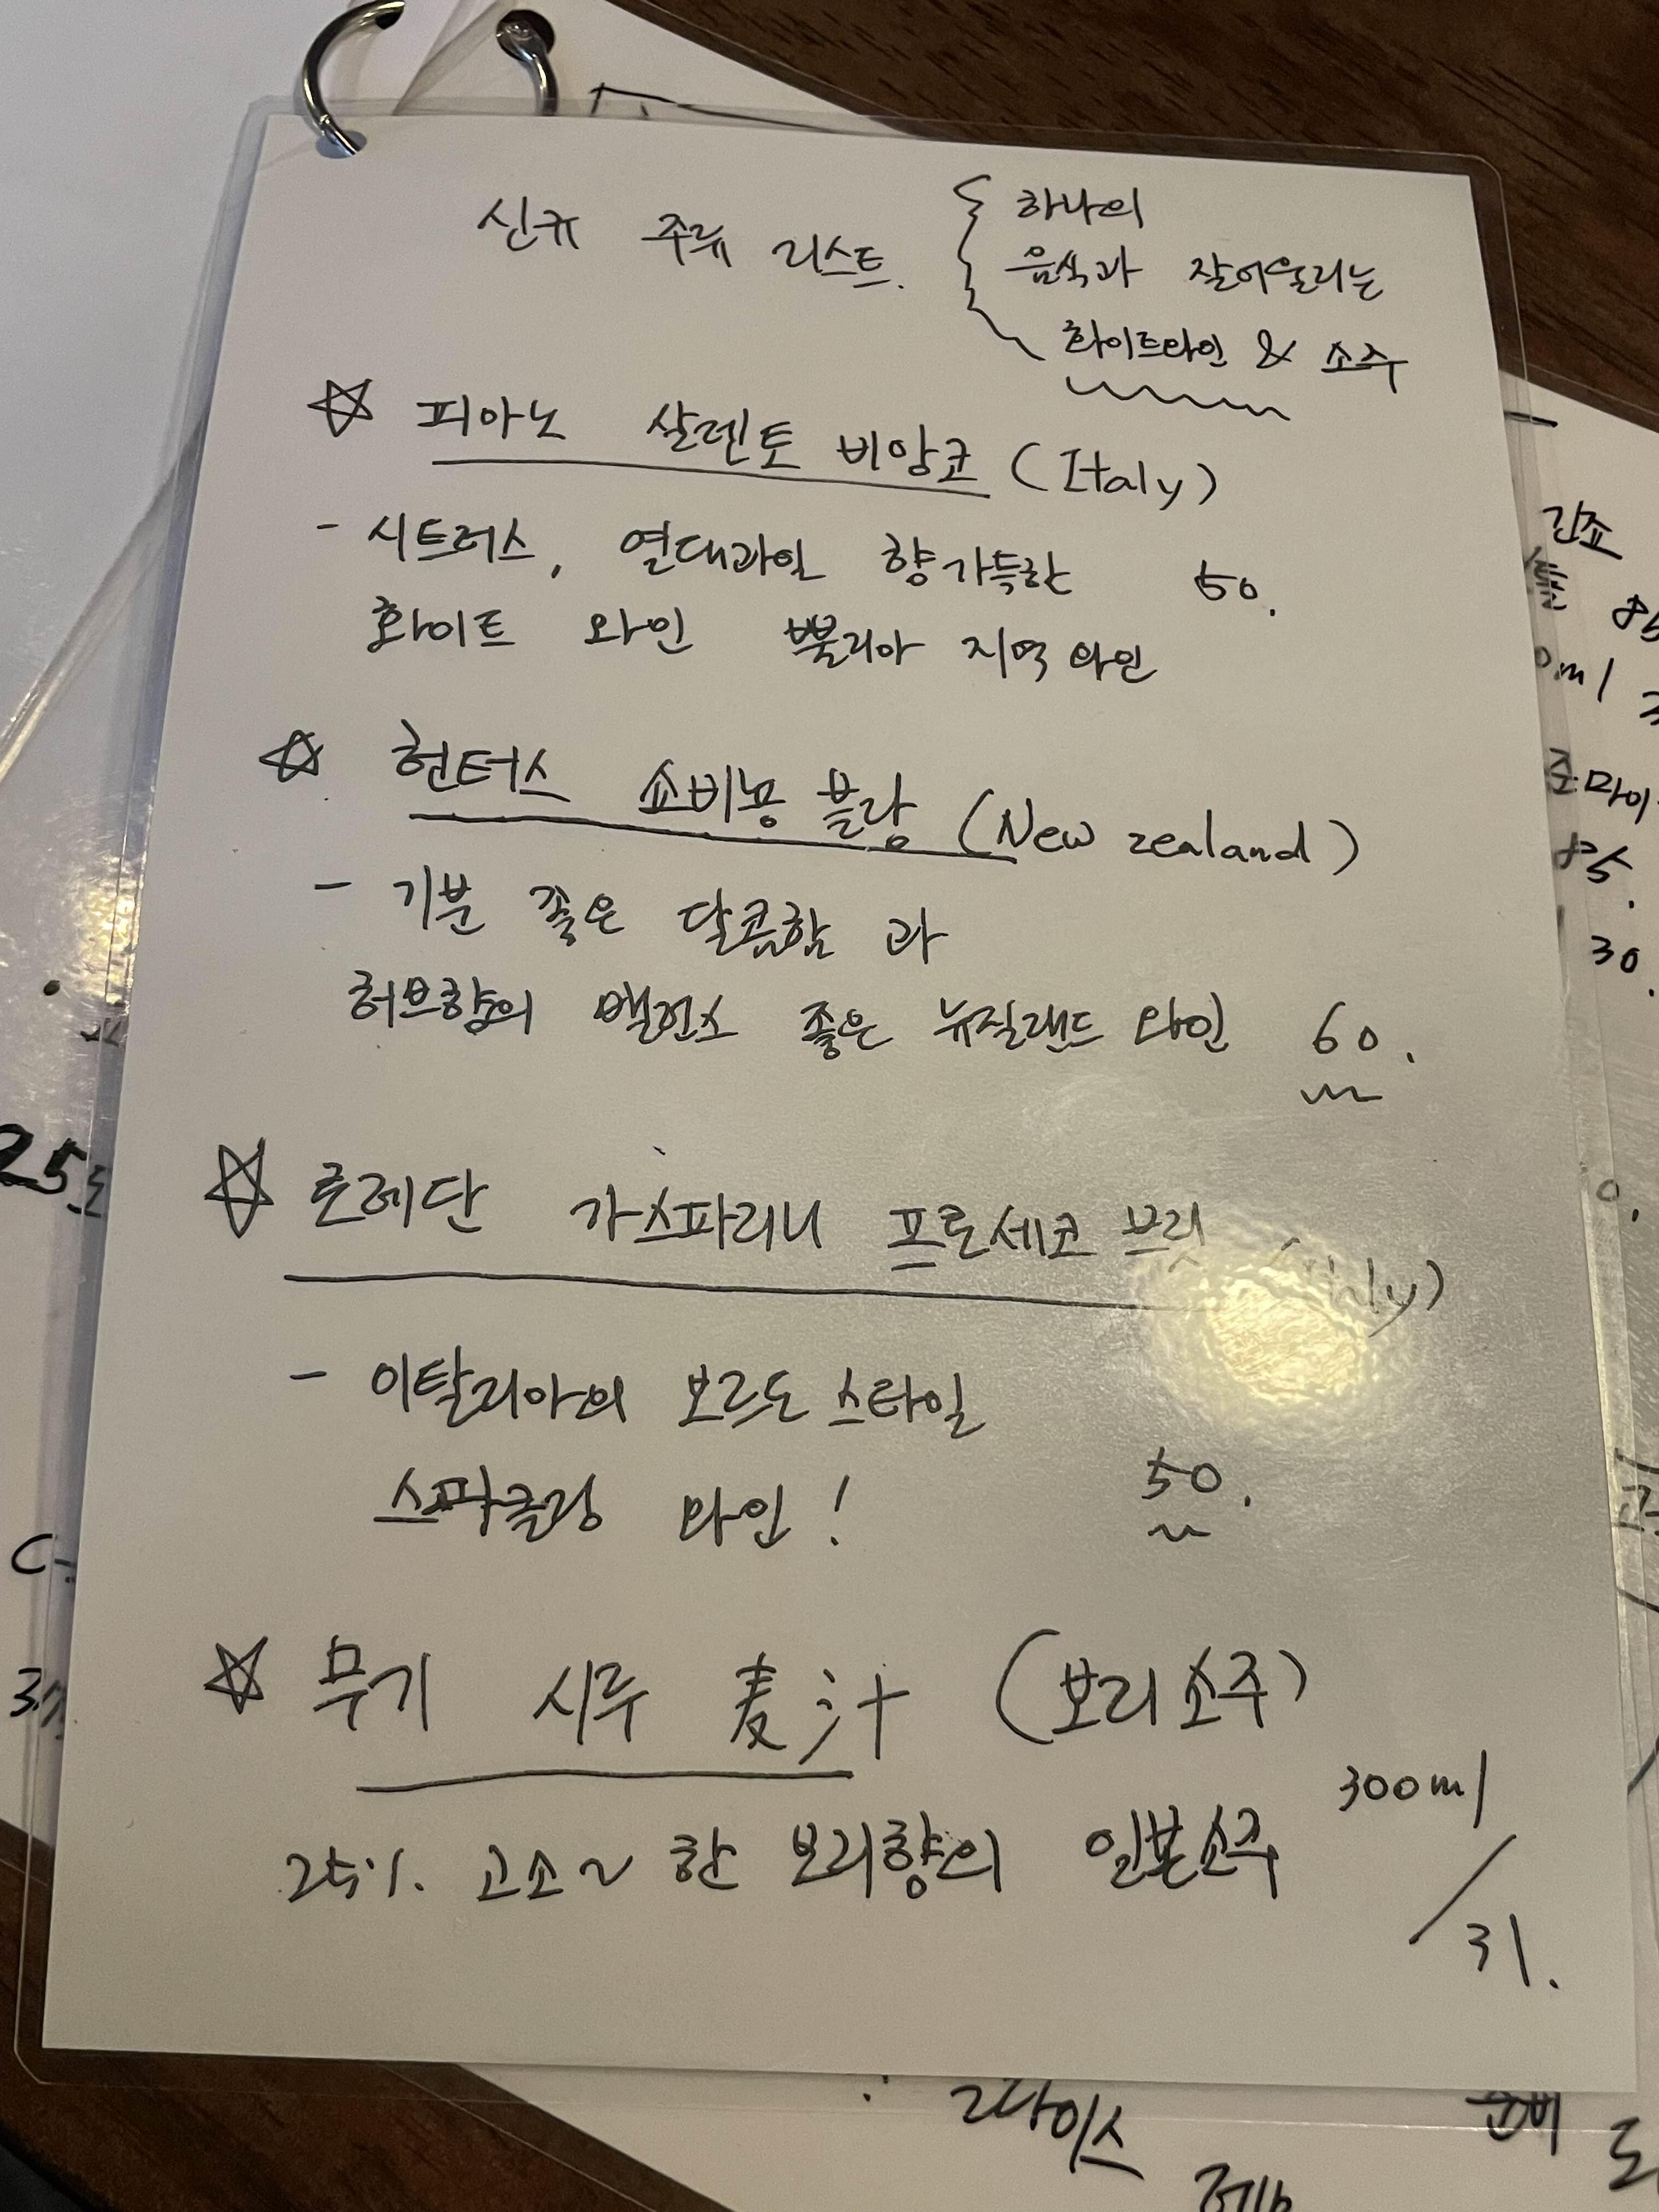 신규 주류 리스트.
하나의
음식과 잘어울리는
화이트와인 & 소주
☆ 피아노 살렌토 비앙코 (Italy)
- 시트러스, 열대과일 향가득한 50.
화이트 와인 뿔리아 지역 와인
☆ 헌터스 쇼비뇽 블랑 (New zealand)
- 기분 좋은 달콤함 과
허브향의 밸런스 좋은 뉴질랜드 와인 60.
☆ 로레단 가스파리니 프로세코 브릿
- 이탈리아의 보르도 스타일
스파클링 와인! 50.
☆ 무기 시루 麦汁 (보리소주)
25%. 고소~한 보리향의 일본소주 300ml / 31.
간죠
30.
25도